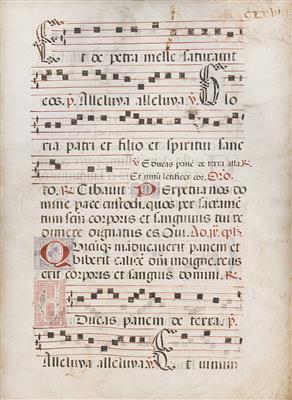 Et de petra melle saturavit
eos. p. Alleluya alleluya. v. Glo
ria patri et filio et spiritui sanc
v. Educas panē de terra alla. R.
Et vinū letificet cor. Oro.
to. R. Cibavit Perpetua nos do
mine pace custodi. quos per sacramē
tum scm corporis et sanguinis tui re
dimere dignatus es. Qui.
Quicūq; māducaverit panem et
biberit calicē dm̄ indigne. reus
erit corporis et sanguis domini. R.
Educas panem de terra. p.
Alleluya alleluya. v. Et vinum